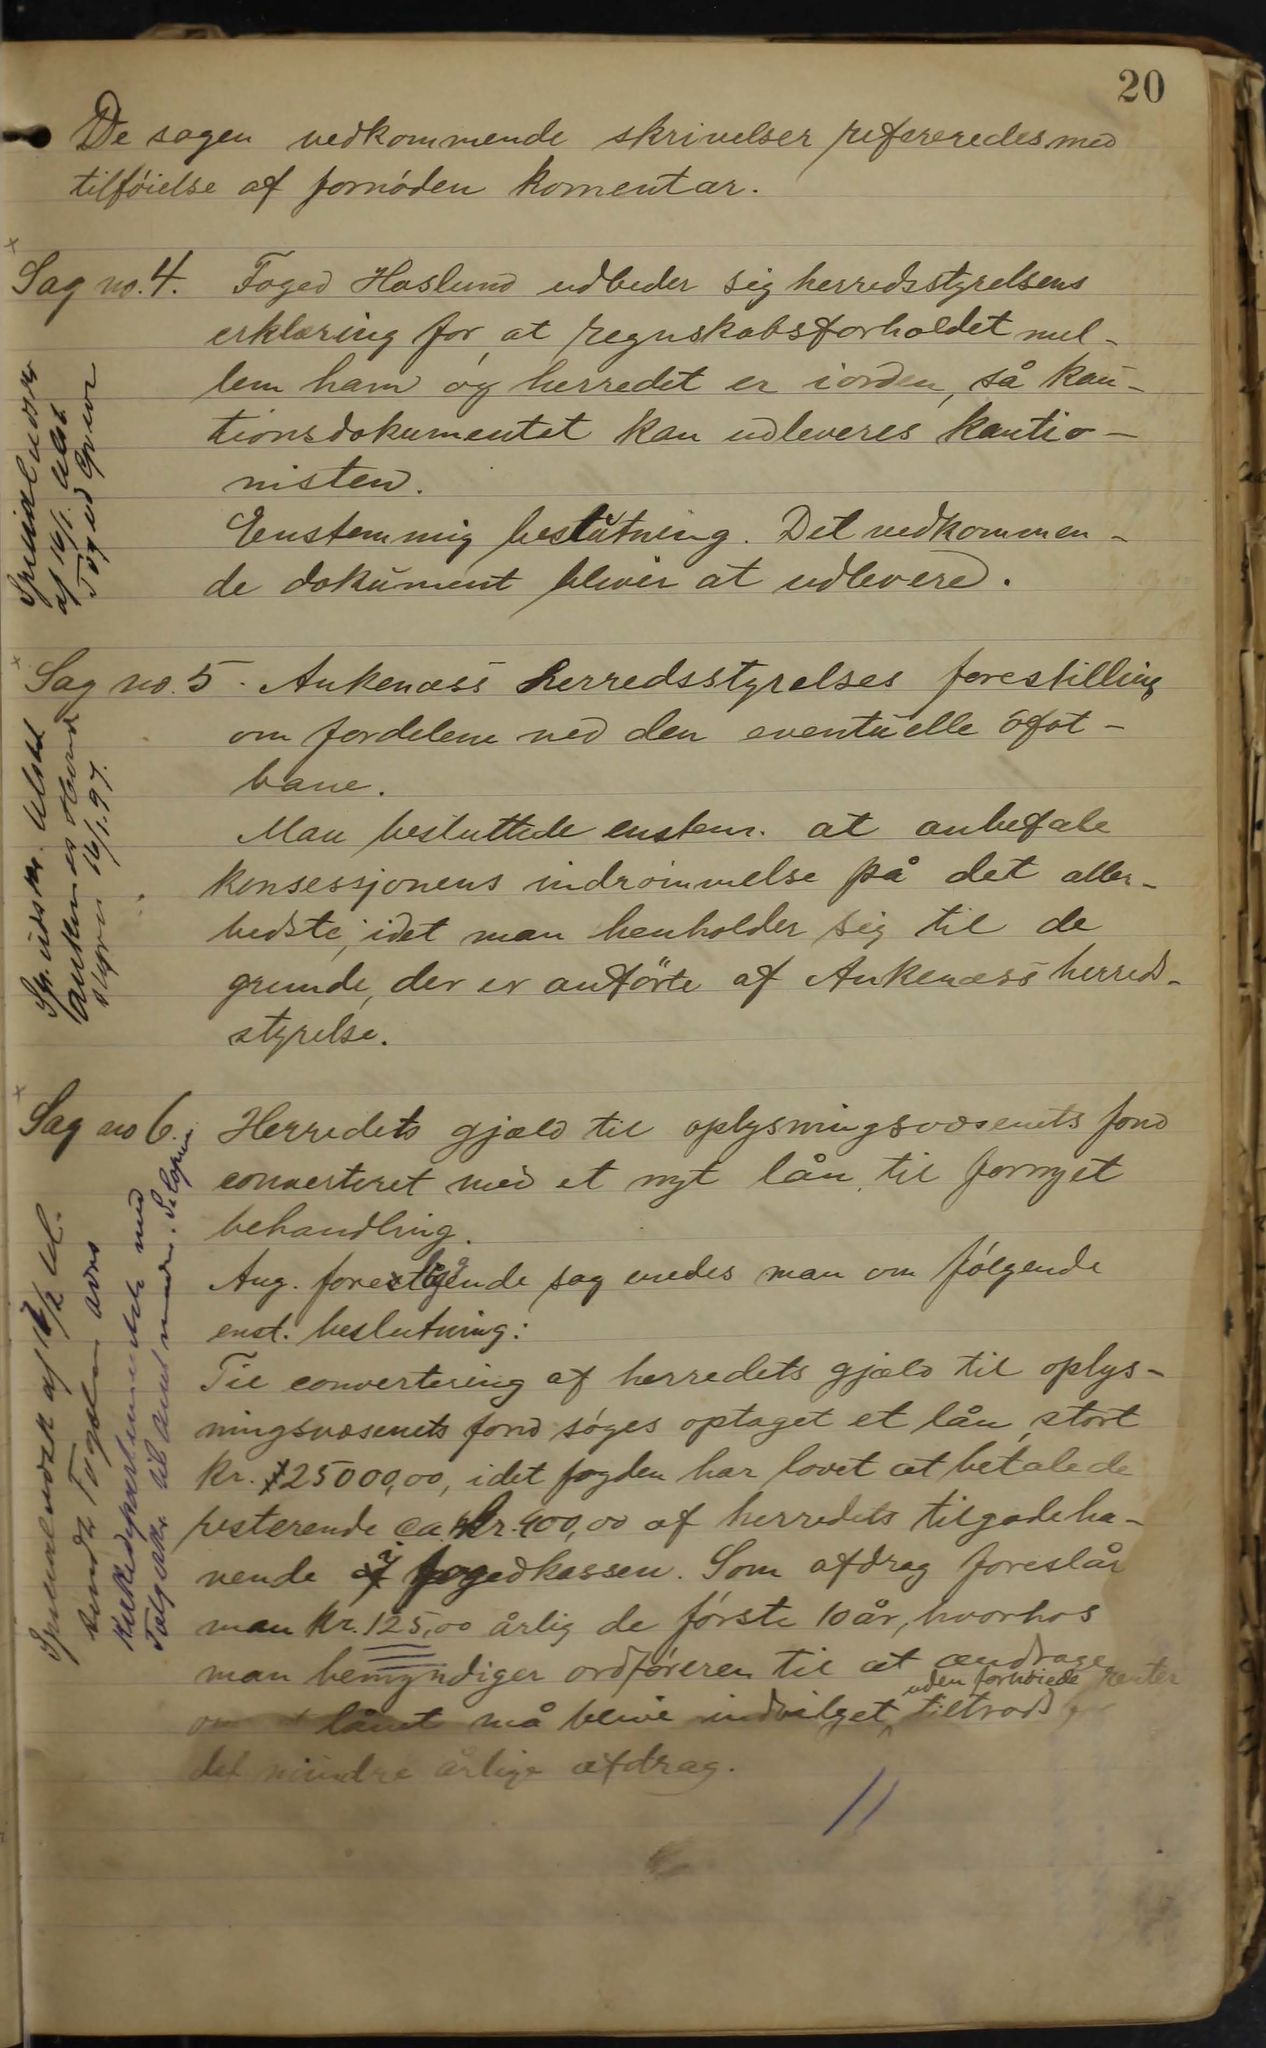 20
De sagen vedkommende skrivelser refereredes med
tilføielse af fornøden komentar.
Sag no. 4. Foged Haslund udbeder sig herredsstyrelsens
erklæring for, at regnskabsforholdet mel-
lem ham og herredet er i orden, så kau-
tionsdokumentet kan udleveres kautio-
nisten.
Enstemmig beslutning. Det vedkommen-
de dokument bliver at udlevere.
Specialudskr.
af 16/1. tilst.
Foged
Sag no. 5. Ankenæss herredsstyrelses forestilling
om fordelene ved den eventuelle Ofot-
bane.
Man besluttede enstem. at anbefale
konsessjonens indrømmelse på det aller-
bedste, idet man henholder sig til de
grunde, der er anførte af Ankenæss herreds-
styrelse.
Sp. udskr. tilst.
Ankenes Herred
styre 16/1. 97.
Sag no 6. Herredets gjæld til oplysningsvæsenets fond
converteret med et nyt lån til fornyet
behandling.
Ang. foreliggende sag enedes man om følgende
enst. beslutning:
Til convertering af herredets gjæld til oplys-
ningsvæsenets fond søges optaget et lån, stort
kr. 25000,00, idet fogden har lovet at betale de
resterende ca. kr. 400,00 af herredets tilgodeha-
vende i fogedkassen. Som afdrag foreslår
man kr. 125,00 årlig de første 10 år, hvorhos
man bemyndiger ordføreren til at andrage
om at lånet må blive indvilget uden forhøiede renter tiltrods for
det mindre årlige afdrag.
Specialudskr af 16/2 til.
sendt Fogden
Kirkedepartementet med